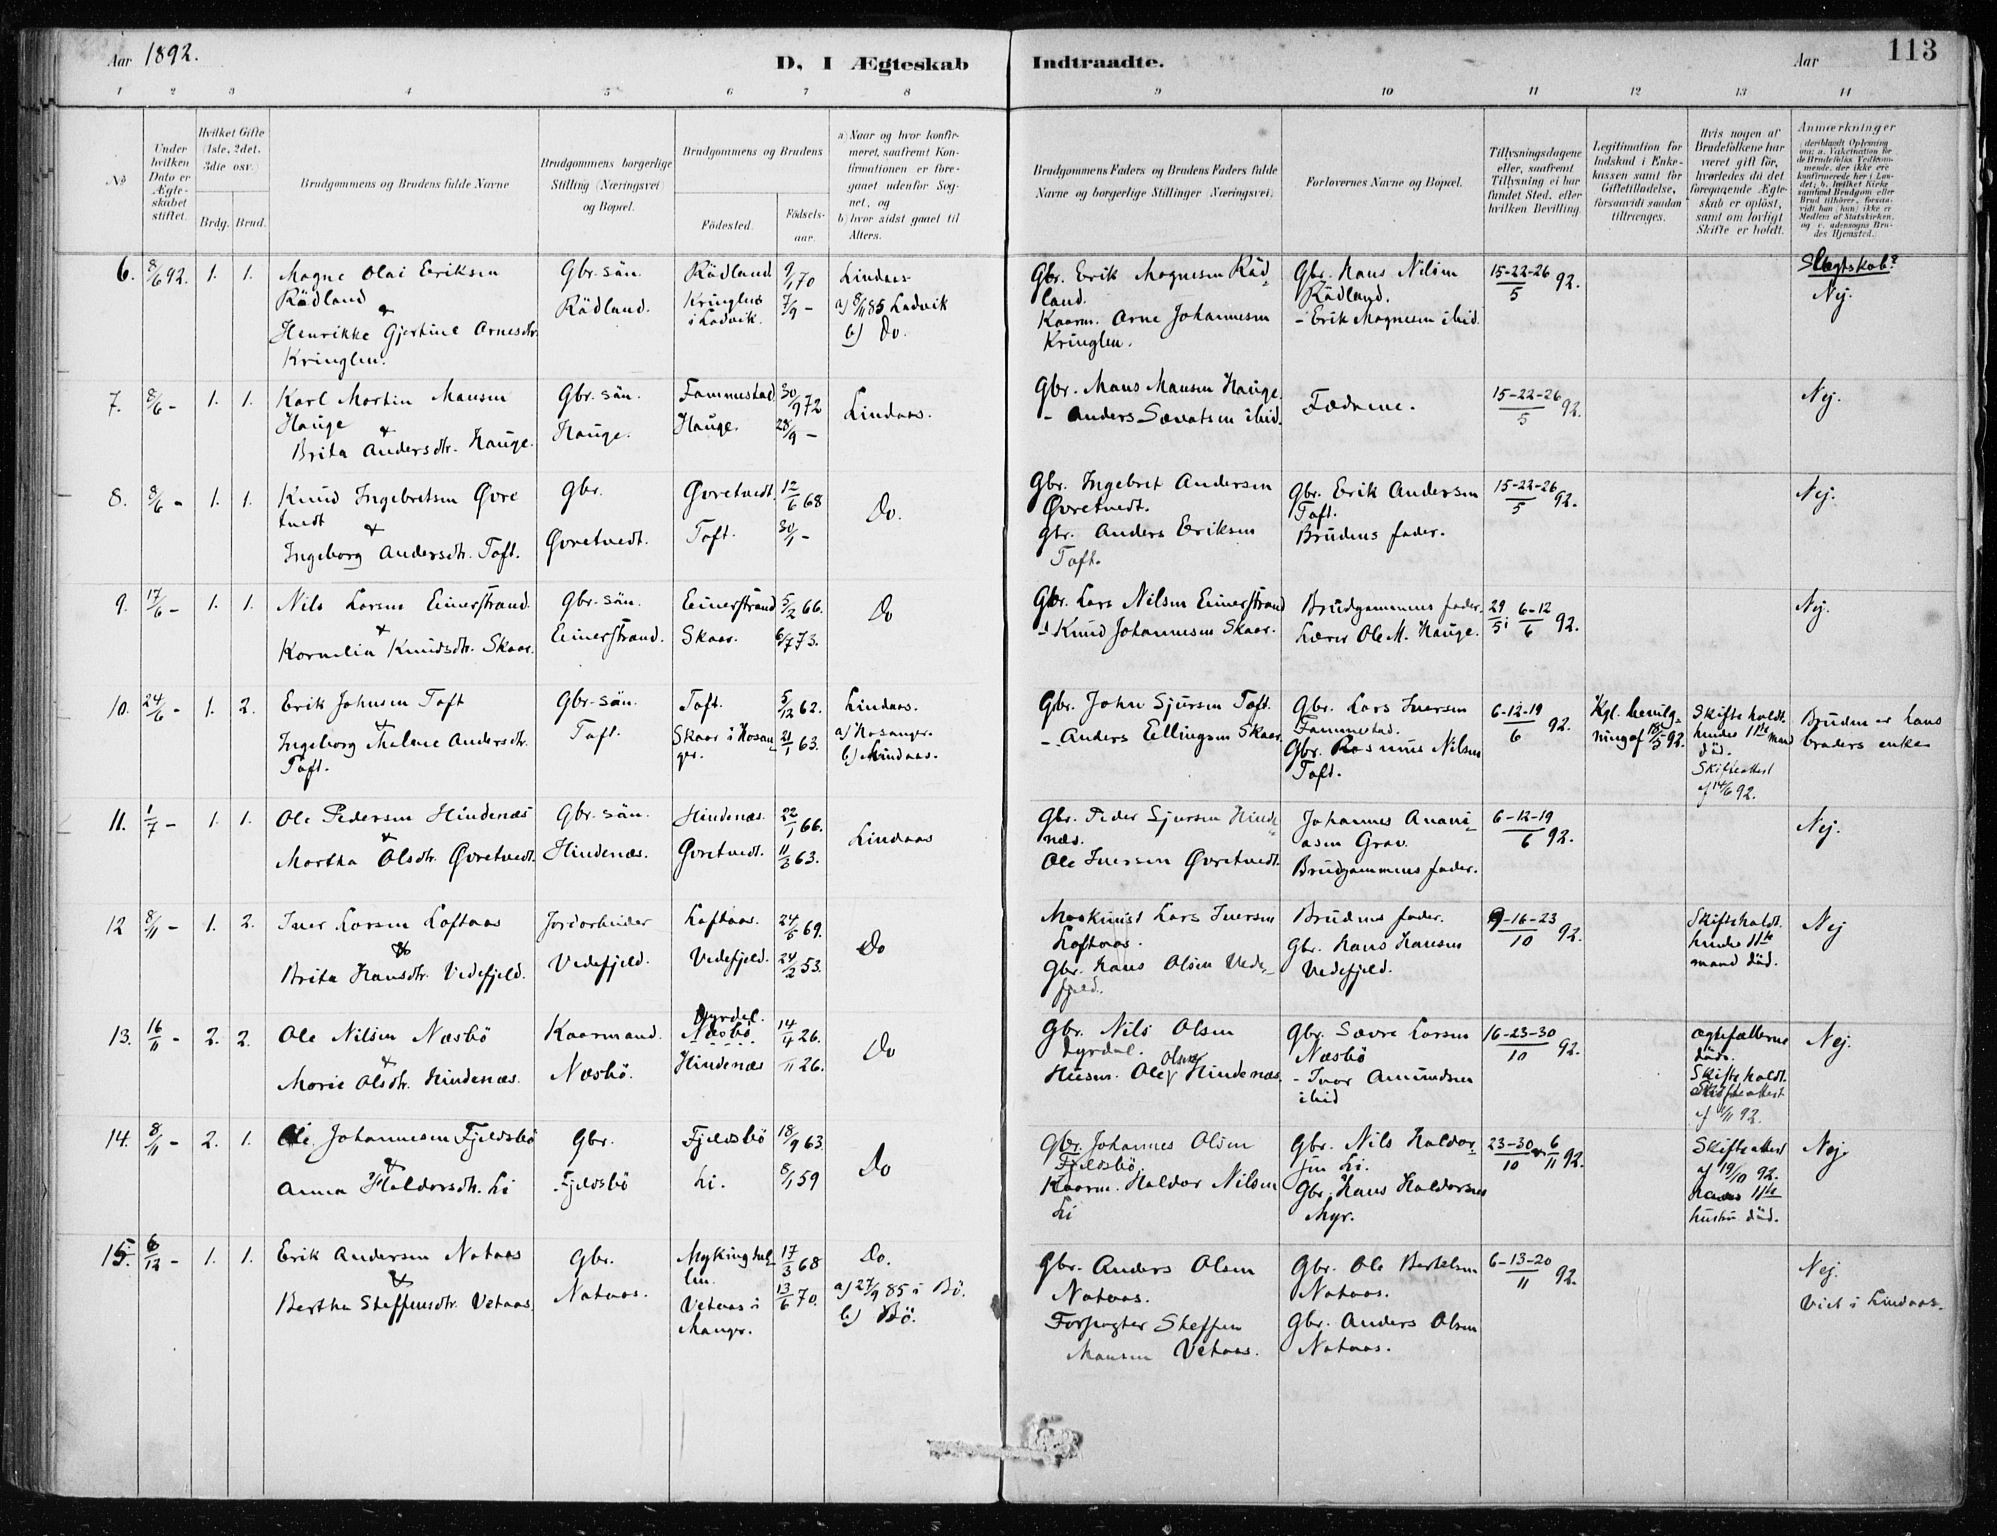 Aar 1892.
D, I Ægteskab Indtraadte.
Aar
113
1 2 3 4 5 6 7 8 9 10 11 12 13 14
No
Under hvilken Dato er Ægteskabet stiftet.
Hvilket Gifte (1ste, 2det, 3die osv.)
Brdg. Brud.
Brudgommens og Brudens fulde Navne
Brudgommens borgerlige Stilling (Næringsvei) og Bopæl.
Brudgommens og Brudens
Födested.
Födselsaar.
a) Naar og hvor konfirmeret, saafremt Konfirmationen er foregaaet udenfor Sognet, og
b) hvor sidst gaaet til Alters.
Brudgommens Faders og Brudens Faders fulde Navne og borgerlige Stillinger (Næringsvei).
Forlovernes Navne og Bopæl.
Tillysningsdagene eller, saafremt Tillysning ei har fundet Sted, efter hvilken Bevilling.
Legitimation for Indskud i Enkekassen samt for Giftetilladelse, forsaavidt saadan tiltrænges.
Hvis nogen af Brudefolkene har været gift för, hvorledes da det foregaaende Ægteskab er oplöst, samt om lovligt Skifte er holdt.
Anmærkninger
6. 8/6 92. 1. 1. Magne Olai Eriksen Rädland & Henrikke Gjertine Arnesdtr. Kringlen.
Gbr. sön Rädland.
Rädland Kringlen i Ladvik.
9/1 70 7/9 -
Lindaas a) 8/11 85 Ladvik b) Do.
Gbr. Erik Magnesen Rädland. Kaarm. Arne Johannesen Kringlen.
Gbr. Hans Nilsen Rädland. - Erik Magnesen ibid.
15-22-26/5 92.
Slægtskab? Nej.
7. 8/6 - 1. 1. Karl Martin Mansen Hauge & Brita Andersdtr. Hauge.
Gbr. sön. Hauge.
Fammestad Hauge.
30/9 72 28/9 -
Lindaas.
Gbr. Mans Mansen Hauge. - Anders Sævatsen ibid.
Fædrene.
15-22-26/5 92.
Nej.
8. 8/6 - 1. 1. Knud Ingebretsen Øvretvedt & Ingeborg Andersdtr. Toft.
Gbr. Øvretvedt.
Øvretvedt. Toft.
12/6 68 30/1 -
Do.
Gbr. Ingebret Andersen Øvretvedt. Gbr. Anders Eriksen Toft.
Gbr. Erik Andersen Toft. Brudens fader.
15-22-26/5 92.
Nej.
9. 17/6 - 1. 1. Nils Larsen Einerstrand. & Kornelia Knudsdtr. Skaar.
Gbr. sön. Einerstrand.
Einerstrand Skaar.
5/2 66. 6/7 73.
Do
Gbr. Lars Nilsen Einerstrand - Knud Johannesen Skaar.
Brudgommens fader. Lærer Ole M. Hauge.
29/5; 6-12/6 92.
Nej.
10. 24/6 - 1. 2. Erik Johnsen Toft & Ingeborg Thelene Andersdtr. Toft.
Gbr. sön. Toft.
Toft. Skaar i Hosanger.
5/12 62. 21/1 63.
Lindaas. a) Hosanger. b) Lindaas.
Gbr. John Sjursen Toft. - Anders Ellingsen Skaar.
Gbr. Lars Iversen Fammestad. Gbr. Rasmus Nilsen Toft.
6-12-19/6 92.
Kgl. bevilgning af 18/5 92.
Skifte holdt. hendes 1ste mand död. Skifteattest af 14/6 92.
Bruden er hans broders enke
11. 1/7 - 1. 1. Ole Pedersen Hindenæs & Martha Olsdtr. Øvretvedt.
Gbr. sön. Hindenæs.
Hindenæs. Øvretvedt.
22/1 66. 11/3 63.
Lindaas
Gbr. Peder Sjursen Hindenæs. Ole Iversen Øvretvedt.
Johannes Ananiasen Grav. Brudgommens fader.
6-12-19/6 92.
Nej.
12 8/11 - 1. 2. Iver Larsen Loftaas & Brita Hansdtr. Vedefjeld.
Jordarbeider Vedefjeld.
Loftaas. Vedefjeld.
24/6 69. 24/2 53.
Do
Maskinist Lars Iversen Loftaas. Gbr. Hans Olsen Vedefjeld.
Brudens fader. Gbr. Hans Hansen Vedefjeld.
9-16-23/10 92.
Skifte holdt. hendes 1ste mand död.
Nej
13. 16/11 - 2. 2. Ole Nilsen Næsbö & Marie Olsdtr. Hindenæs.
Kaarmand. Næsbö.
Dyrdal. Næsbö Hindenæs
14/4 26. /11 26.
Do
Gbr. Nils Olsen Dyrdal. Husm. Ole Olsen Hindenæs.
Gbr. Sævre Larsen Næsbö - Ivar Amundsen ibid
16-23-30/10 92.
ægtefællerne döde. Skifte holdt. Skifteattest af /11 92.
Nej.
14. 8/11 - 2. 1. Ole Johannesen Fjeldsbö & Anna Haldorsdtr. Li
Gbr. Fjeldsbö
Fjeldsbö Li.
18/9 63 8/1 59
Do
Gbr. Johannes Olsen Fjeldsbö. Kaarm. Haldor Nilsen Li
Gbr. Nils Haldorsen Li. Gbr. Hans Haldorsen Myr.
23-30/10 og 6/11 92.
Skifteattest af 19/10 92. hans 1ste hustru död.
Nej.
15. 6/12 - 1. 1. Erik Andersen Nataas & Bertha Steffensdtr. Vetaas.
Gbr. Nataas.
Mykingholen. Vetaas i Manger.
17/3 68 13/6 70.
Do. a) 27/9 85 i Bö. b) Bö.
Gbr. Anders Olsen Nataas. Forpagter Steffen Mansen Vetaas.
Gbr. Ole Bertelsen Nataas. Gbr. Anders Olsen Nataas.
6-13-20/11 92.
Nej. Viet i Lindaas.